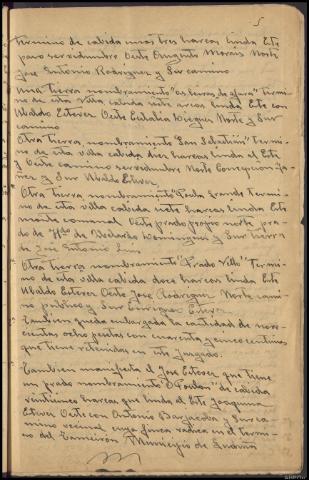 5
termino de cabida unas tres hareas linda Este
paso servidumbre Oeste Augusto Morais Norte
Jose Antonio Rodriguez y Sur camino
Una tierra nombramiento "as leiras de afora" termi-
no de esta villa cabida siete areas linda Este con
Ubaldo Estevez Oeste Eulalia Dieguez Norte y Sur
camino
Otra tierra nombramiento "San Sebastián" termi-
no de esta villa cabida diez hareas linda al Este
y Oeste camino servidumbre Norte Concepcion
ñez y Sur Ubaldo Estevez
Otra tierra nombramiento grande termi-
no de esta villa cabida siete hareas linda Este
monte comunal Oeste prado propio norte pra-
do de Abelardo Dominguez y Sur tierra
de Jose Antonio
Otra tierra nombramiento "Prado Vello" termi-
no de esta villa cabida doce hareas linda Este
Ubaldo Estevez Oeste Jose Rodriguez Norte cami-
no publico y Sur Enrique Estevez
Tambien queda embargada la cantidad de nove-
cientas ocho pesetas con cuarenta y cinco centimos
que tiene retenidas en este juzgado.
Tambien manifiesta el Jose Estevez que tiene
un prado nombramiento de cabida
veintiuna hareas que linda al Este Joaquina
Estevez Oeste con Antonio Barjacoba y Sur ca-
mino vecinal cuya finca radica en el termi-
no del Tameirón Municipio de Gudiña